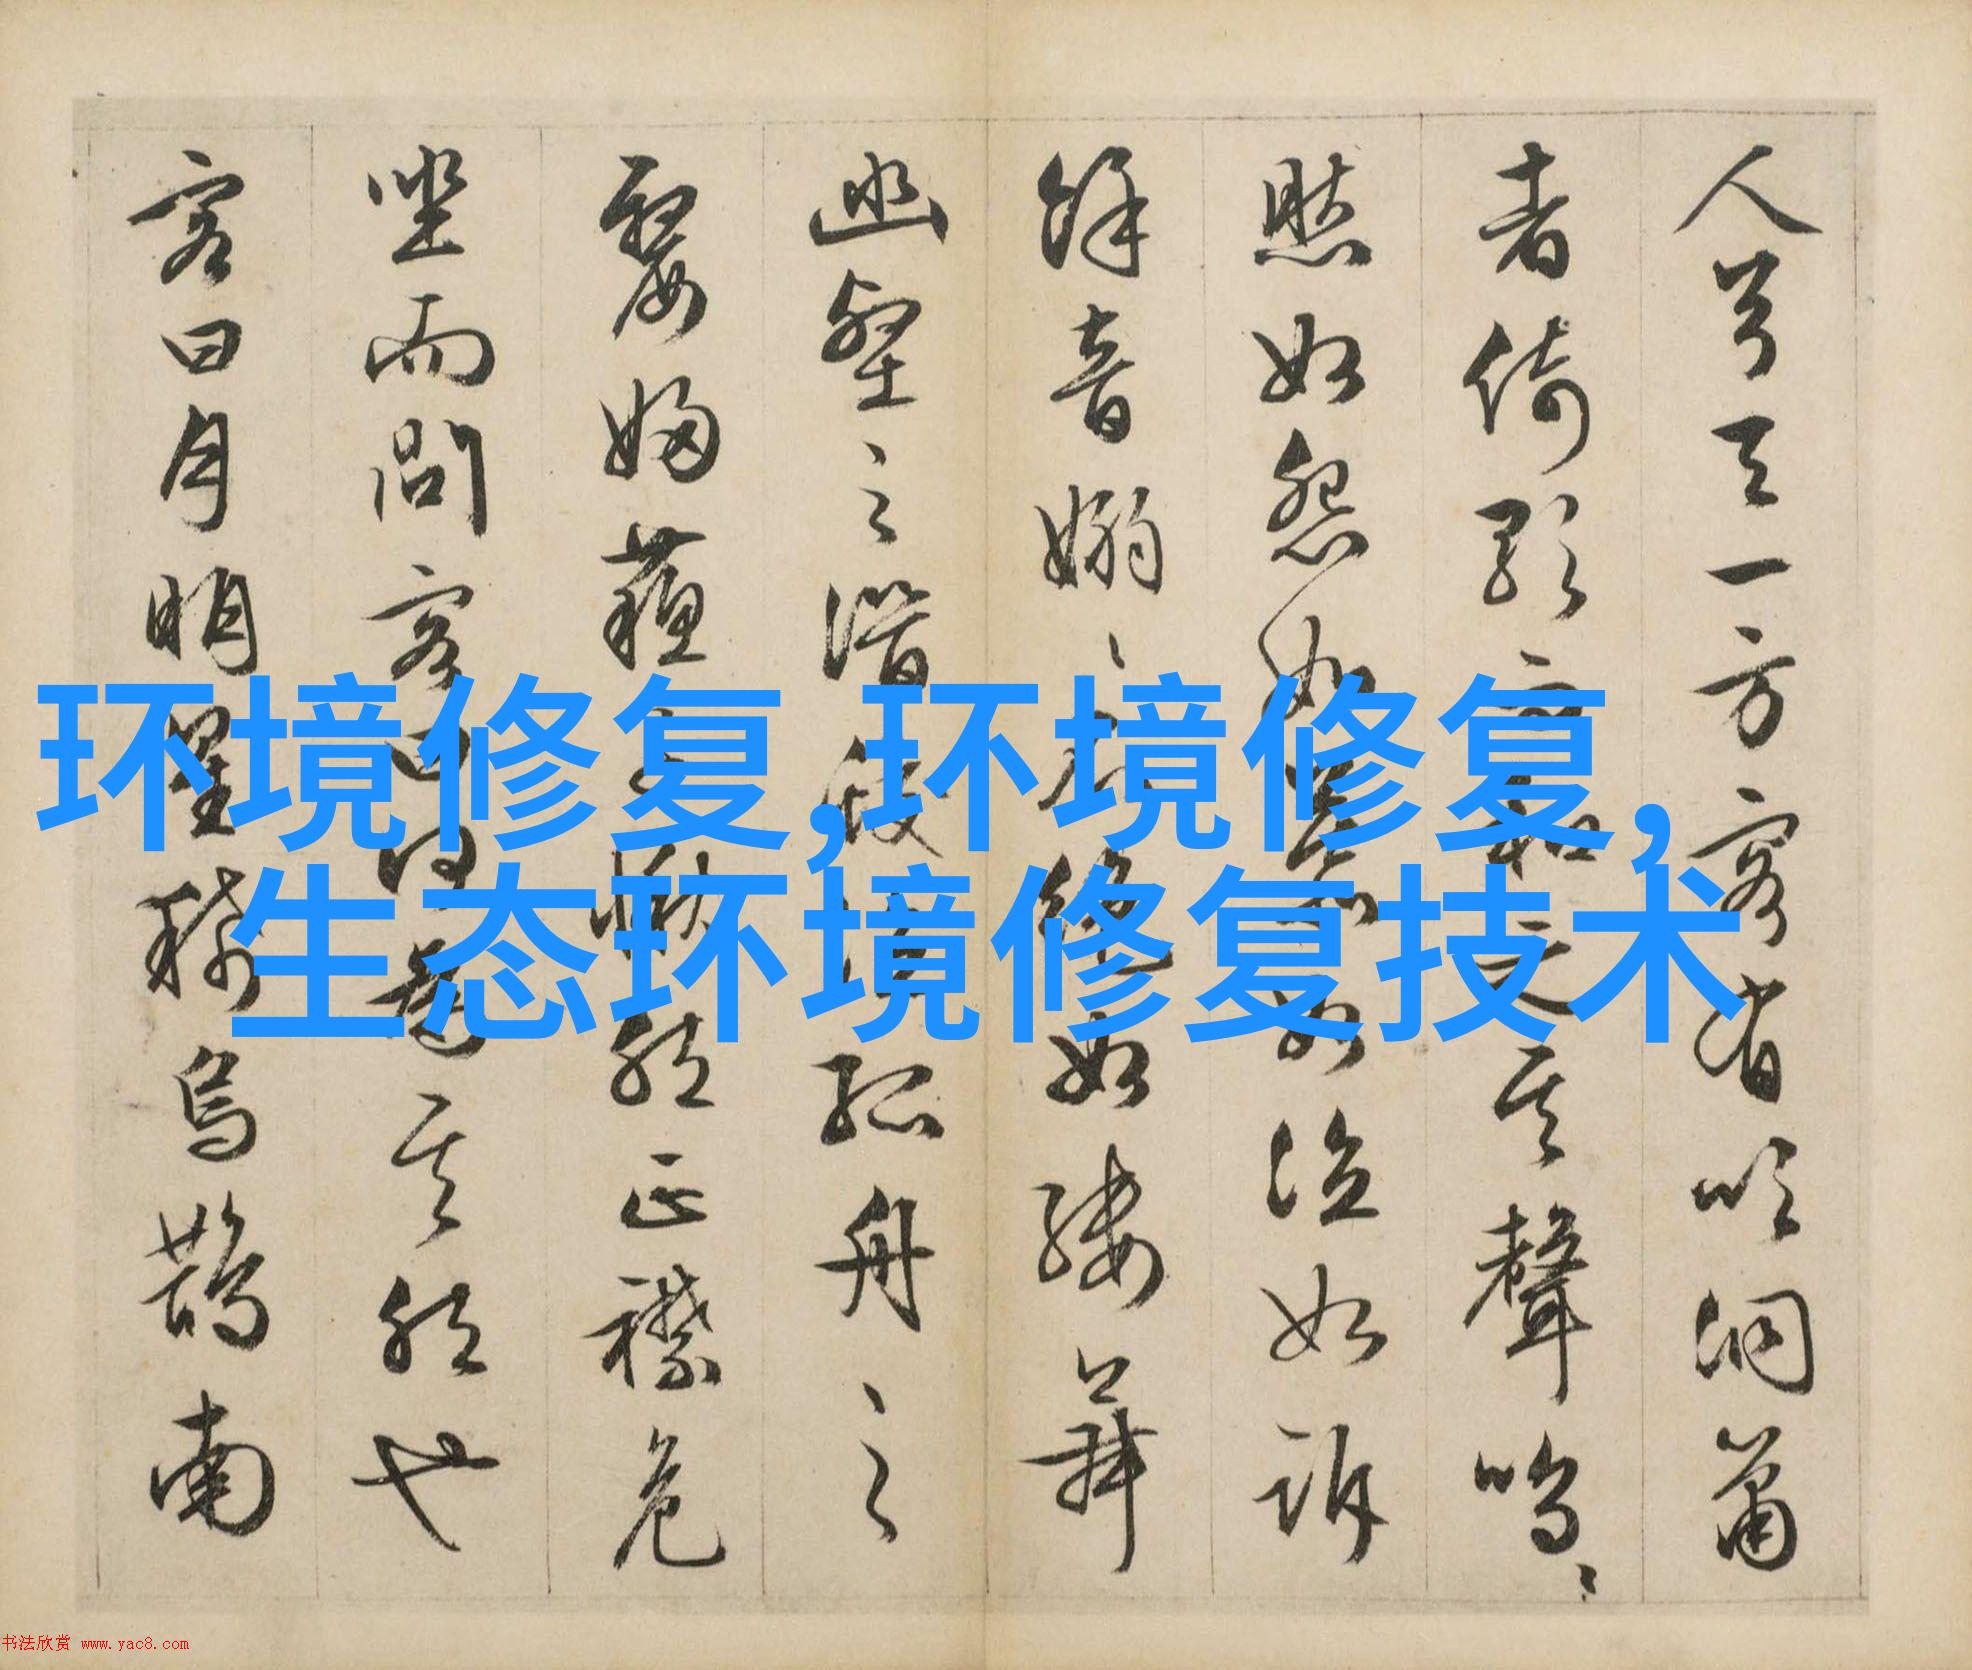 人兮天一方客有吹洞簫
者倚歌而和之其聲嗚〻
然如怨如慕如泣如訴
餘音嫋〻不絕如縷舞
幽壑之潛蛟泣孤舟之
嫠婦蘇子愀然正襟危
坐而問客曰何為其然也
客曰月明星稀烏鵲南
环境修复,环境修复,
生态环境修复技术
书法欣赏 www.yac8.com